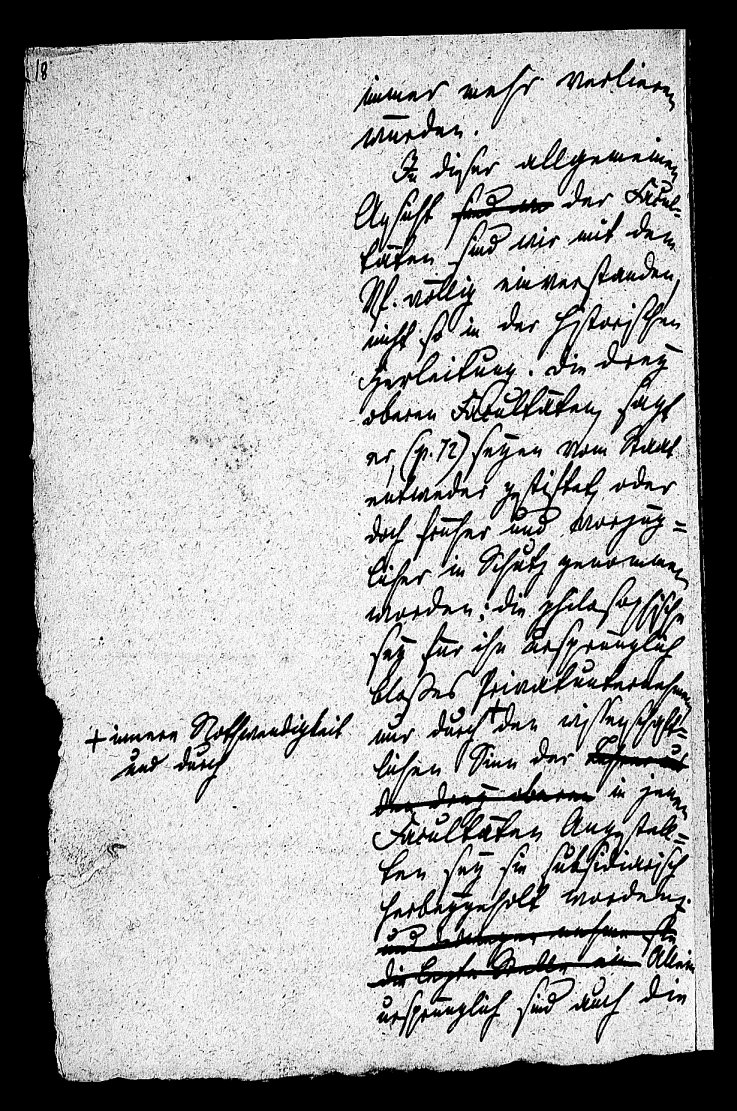 18
immer mehr verlieren
würden.
In dieser allgemeinen
Ansicht sind wir der Facul-
täten sind wir mit dem
Vf. völlig einverstanden,
nicht so in der historischen
Herleitung. Die drey
oberen Facultäten, sagt
er, (p. 72) seyen vom Staat
entweder gestiftet, oder
doch früher und vorzüg=
licher in Schutz genommen
worden; die philosophische
sey für ihn ursprünglich
bloßes Privatunternehmen
nur durch + den wissenschaft=
lichen Sinn der Lehrer der
den drey oberen in jenen
Facultäten Angestell=
ten sey sie subsidiarisch
herbeygeholt worden.
und deswegen nehme sie
die letzte Stelle ein Allein
ursprünglich sind auch die
+ innere Nothwendigkeit
und durch